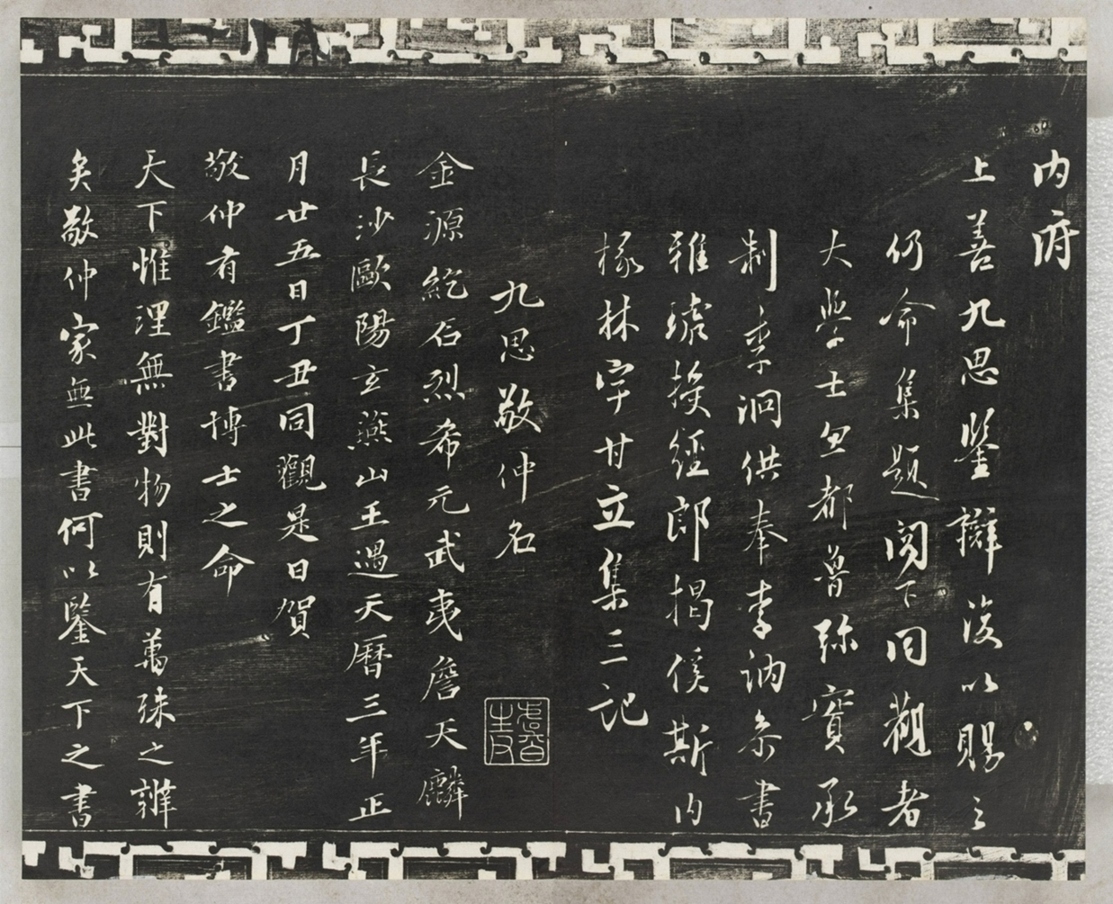 内府
上善九思鑒辯復以賜之
仍命集題閣下同觀者
大學士忽都魯弥實承
制李泂供奉李訥参書
雅琥授經郎揭傒斯内
掾林宇甘立集三記
九思敬仲名
金源紇石烈希元武夷詹天麟
長沙歐陽玄燕山王遇天曆三年正
月廿五日丁丑同觀是日賀
敬仲有鑑書博士之命
天下惟理無對物則有萬殊之辨
矣敬仲家無此書何以鑒天下之書